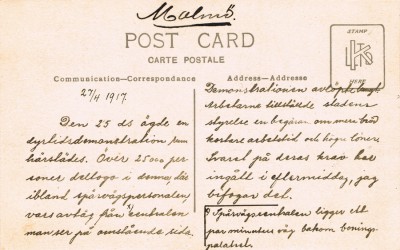 Malmö.
POST CARD
CARTE POSTALE
STAMP
HERE
Communication—Correspondance
Address—Addresse
27/4 1917.
Den 25 ds ägde en
dyrtidsdemonstration rum
härstädes. Över 25000 per-
soner deltogo i denna, däri-
ibland spårvägspersonalen,
vars avtåg från centralen
man ser på omstående sida.
Demonstrationen avlöpte lugnt
Arbetarne tillställde stadens
styrelse en begäran om mer bröd
kortare arbetstid och högre löner.
Svaret på deras krav har
ingått i eftermiddag, jag
bifogar det.
Spårvägscentralen ligger ett
par minuters väg bakom bonings-
palatset.